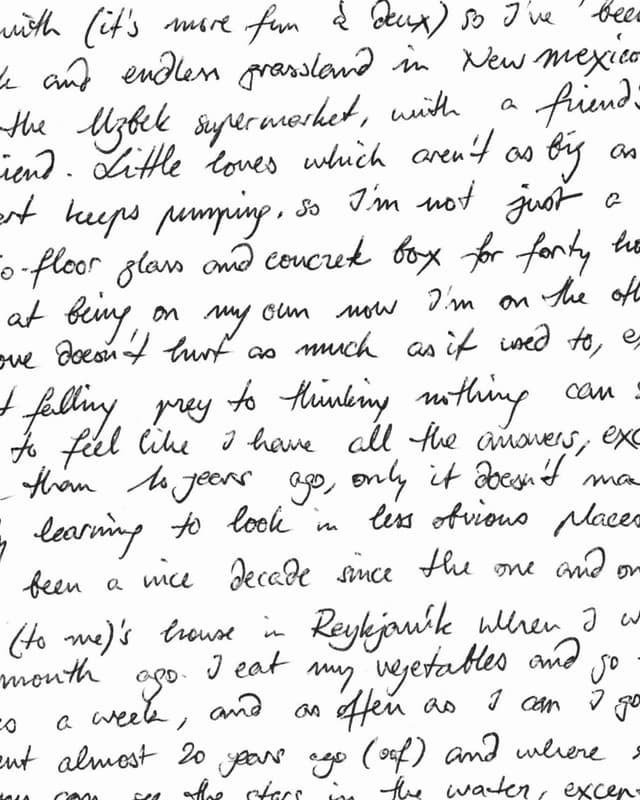 with (it's more fun à deux) so I've been
and endless grassland in New Mexico
the Uzbek supermarket, with a friend's
iend. Little loves which aren't as big as
ert keeps pumping. so I'm not just a
o-floor glass and concrete box for forty ho
at being on my own now I'm on the oth
ove doesn't hurt as much as it used to, e
t falling prey to thinking nothing can s
to feel like I have all the answers, exc
them 10 years ago, only it doesn't ma
y learning to look in less obvious places
been a nice decade since the one and on
(to me)'s house in Reykjavík when I w
month ago. I eat my vegetables and go
es a week, and as often as I can I go
ent almost 20 years ago (oof) and where s
can see the stars in the water, except